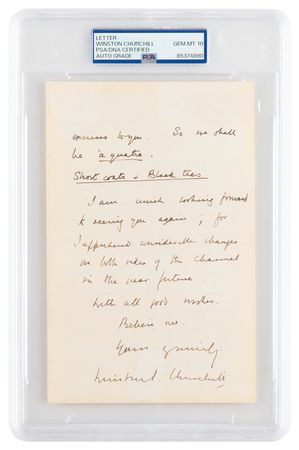 LETTER
WINSTON CHURCHILL
PSA/DNA CERTIFIED
AUTO GRADE
GEM MT 10
85374890
excuses to you. So we shall
be 'à quatre.
Short coats & Black ties
I am much looking forward
to seeing you again; for
I apprehend considerable changes
on both sides of the channel
in the near future.
With all good wishes.
Believe me.
Yours sincerely,
Winston S. Churchill